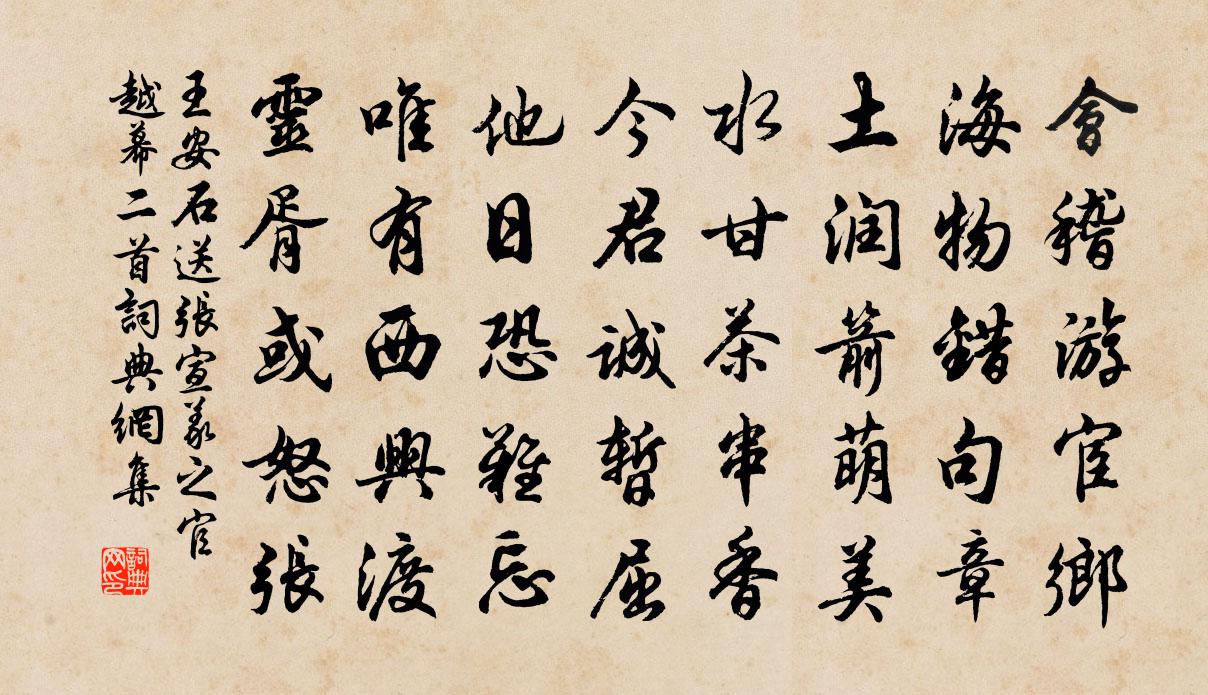 會稽游宦鄉
海物錯句章
土润箭萌美
水甘茶串香
今君誠暫屈
他日恐難忘
唯有西興渡
靈胥或怒張
王安石送張宣義之官
越幕二首詞典網集
詞典网印